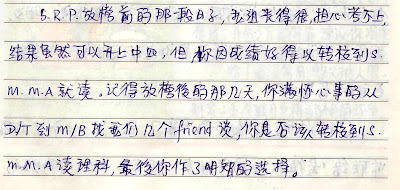 S.R.P.放榜前的那段日子,我俩表得很担心考不上,
结果虽然可以升上中四,但你因成绩好得以转校到S.
M.M.A就读。记得放榜后的那几天,你满怀心事的从
D/T到m/B找我们几个friend谈,你是否该转校到S.
m.m.A读理科,最後你作了明朗的选择。